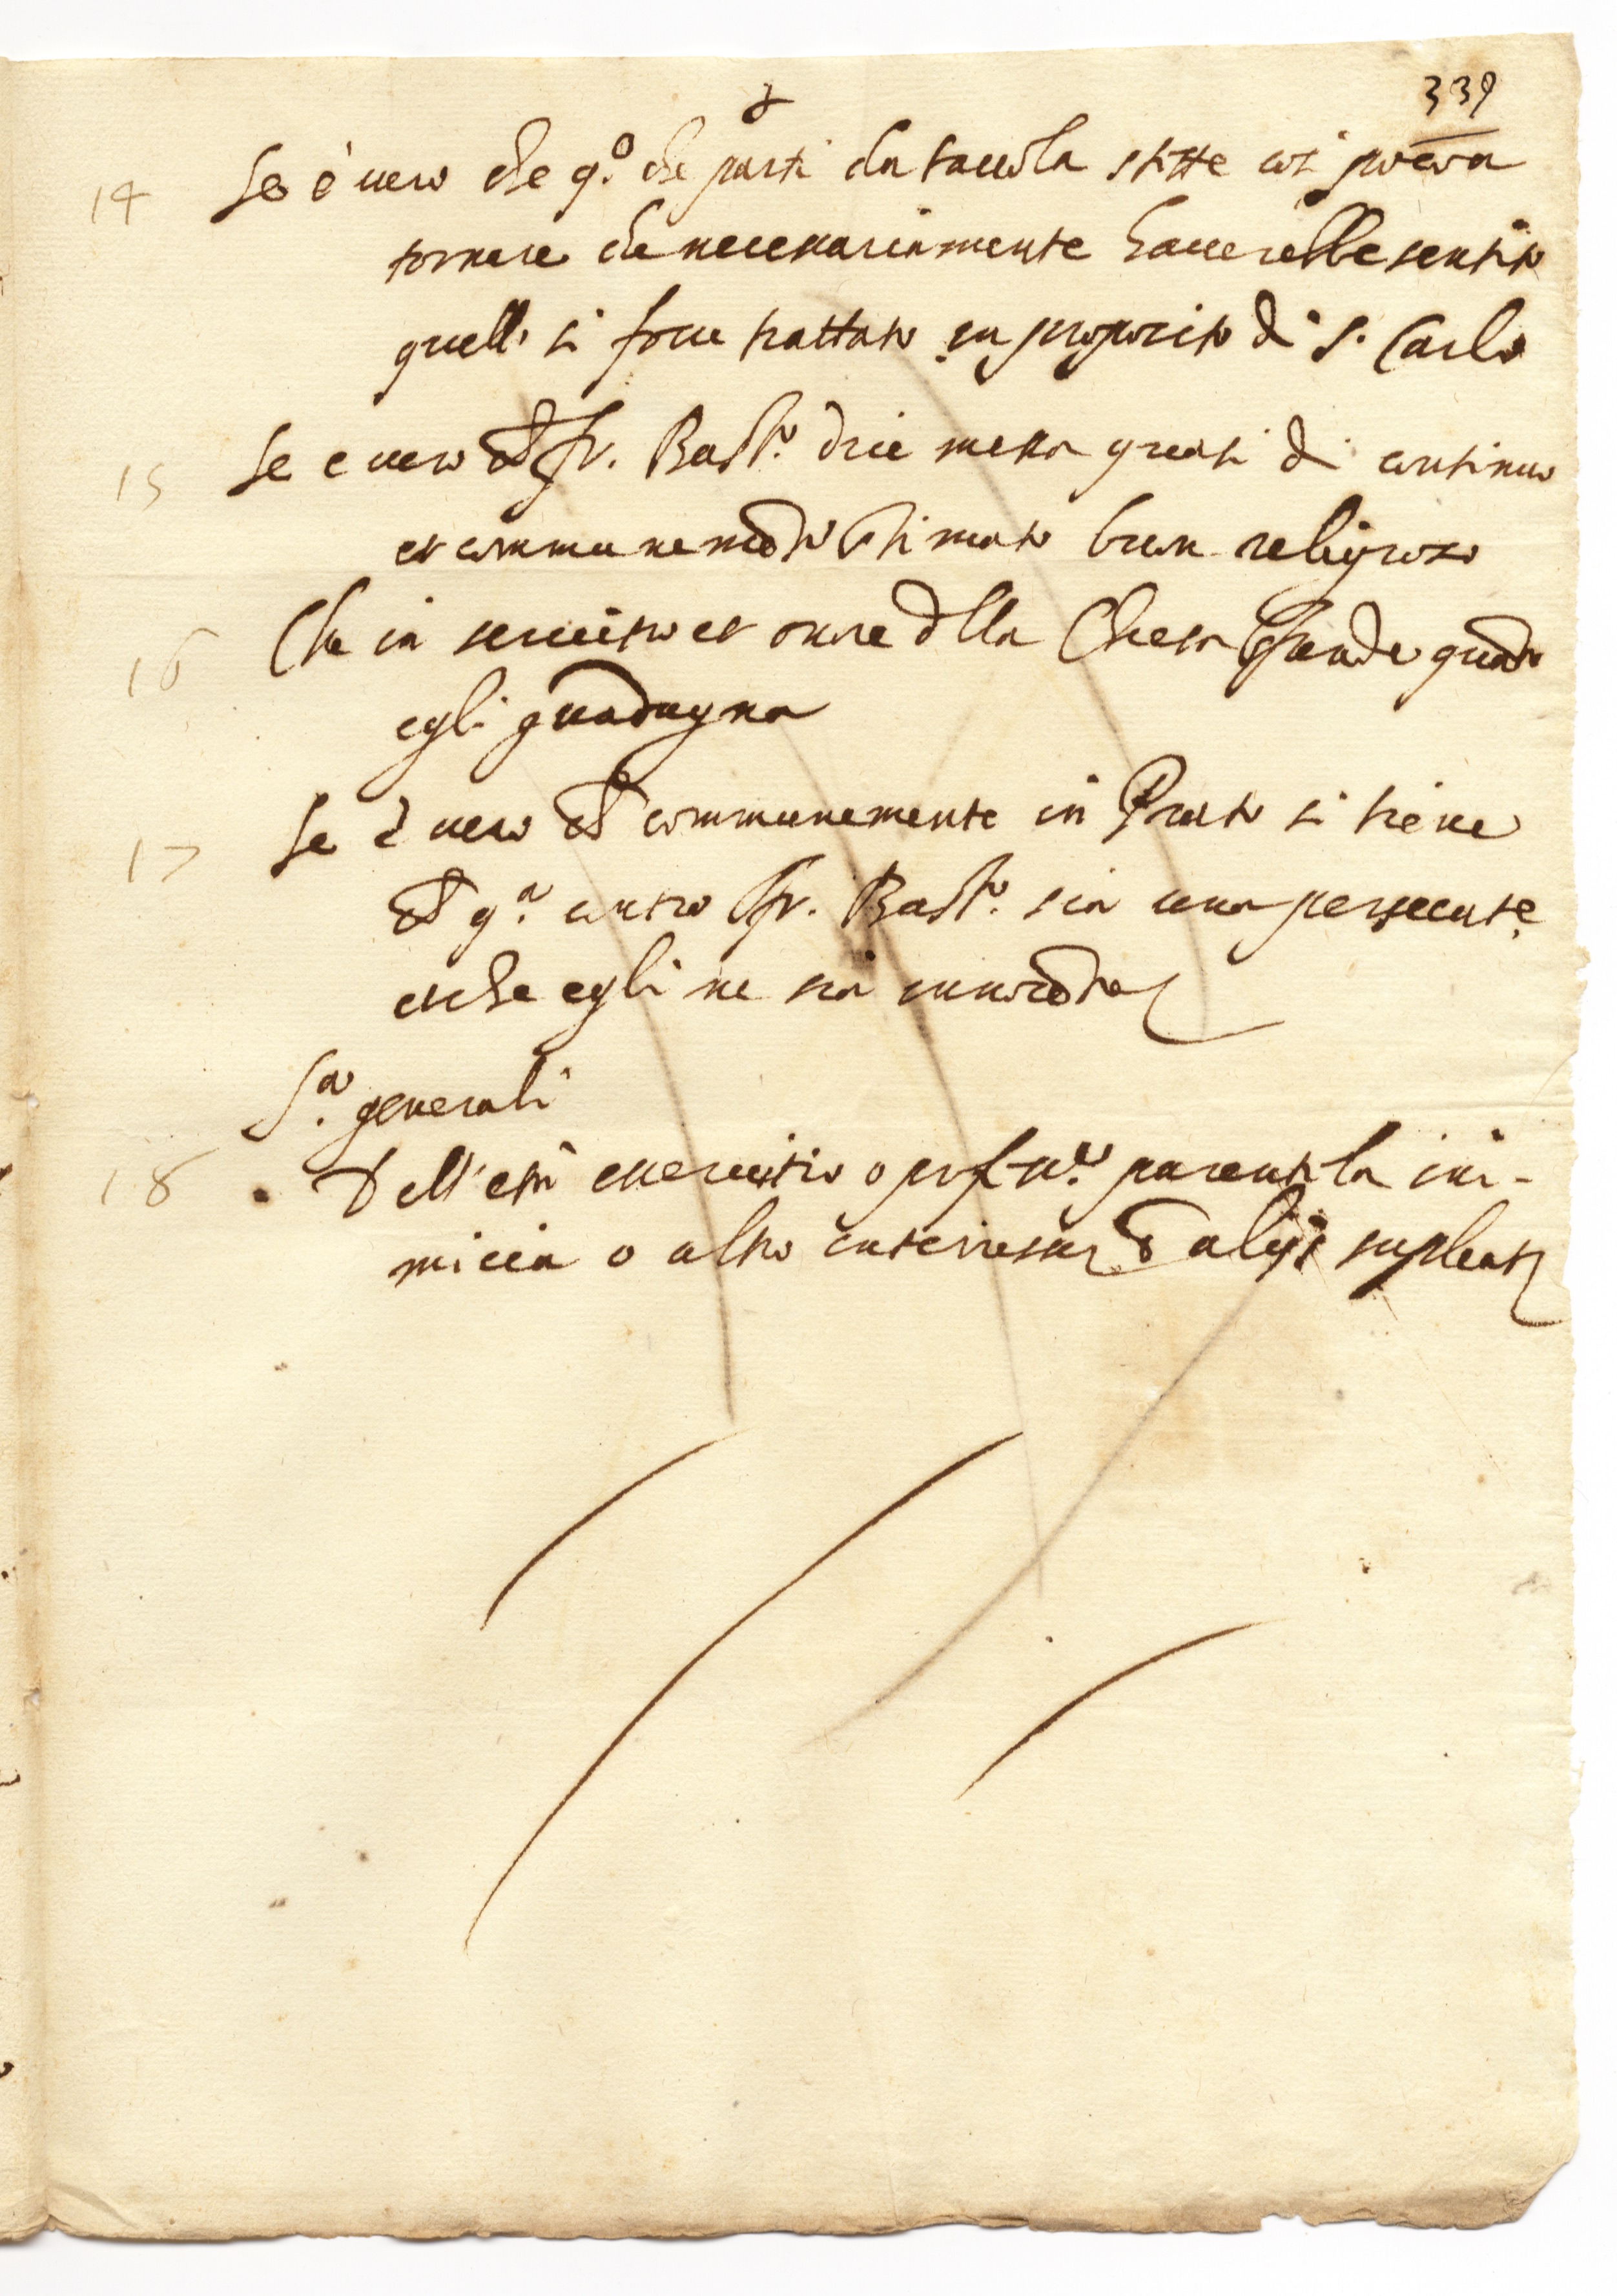 339
14 Se è uero che q.o che parti da tauola stette così poco a
tornare che necessariamente hauerebbe sentito
quello si fosse trattato in proposito di S. Carlo
15 Se e uero che fr. Bast.o dice messa quasi di continuo
et communemẽte stimato buon religioso
16 Che in seruitio et onore dlla Chiesa spende quãto
egli guadagna
17 Se è uero che communemente in Prato si tiene
che q.a contro fr. Bast.o sia una persecut.e
et che egli ne sia innocẽte
S.a generali
18 Dell'età essercitio o prof.ne parentela ini-
micia o altro interesse & alijs supleat